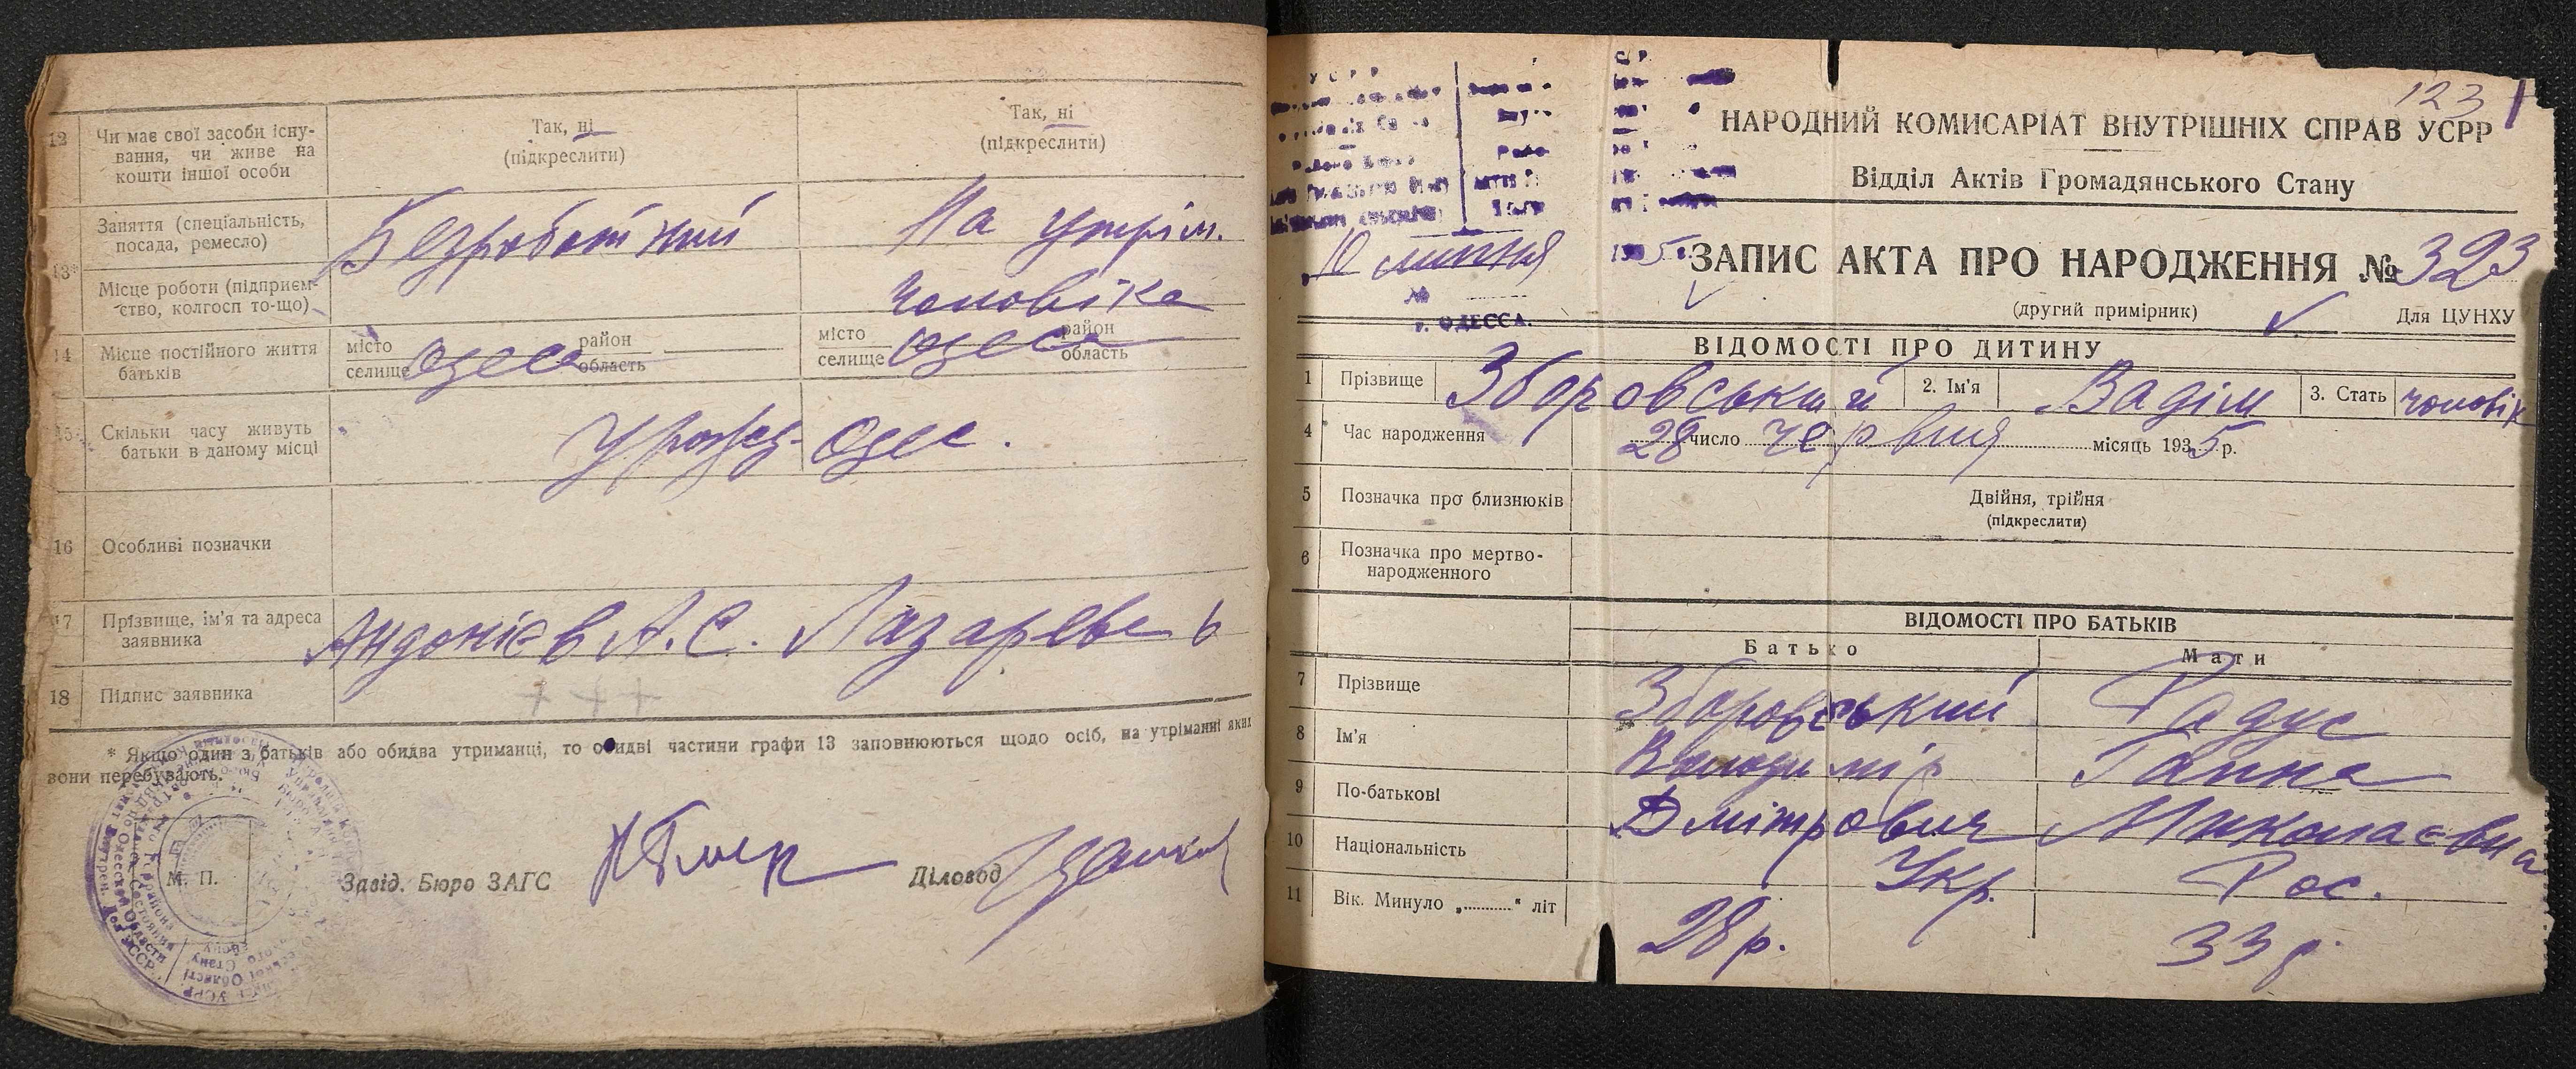 12 Чи має свої засоби існу-
вання, чи живе на
кошти іншої особи
Так, ні
(підкреслити)
Так, ні
(підкреслити)
13*
Заняття (спеціальність,
посада, ремесло)
Безробітний
На утрім.
чоловіка
Місце роботи (підприєм-
ство, колгосп то-що)
14 Місце постійного життя
батьків
місто
селище
Одеса
район
область
місто
селище
Одеса
район
область
15 Скільки часу живуть
батьки в даному місці
Урожд. Одес.
16 Особливі позначки
17 Прізвище, ім'я та адреса
заявника
Андонієв А. С.
18 Підпис заявника
+ + +
* Якщо один з батьків або обидва утриманці, то обидві частини графи 13 заповнюються щодо осіб, на утриманні яких
вони перебувають.
М. П.
Завід. Бюро ЗАГС
Діловод
123
НАРОДНИЙ КОМИСАРІАТ ВНУТРІШНІХ СПРАВ УСРР
Відділ Актів Громадянського Стану
УСРР
10 липня
№
г. ОДЕССА.
ЗАПИС АКТА ПРО НАРОДЖЕННЯ № 323
(другий примірник)
Для ЦУНХУ
ВІДОМОСТІ ПРО ДИТИНУ
1 Прізвище Зборовський 2. Ім'я Вадім 3. Стать чоловік
4 Час народження 28 число червня місяць 1935 р.
5 Позначка про близнюків
Двійня, трійня
(підкреслити)
6 Позначка про мертво-
народженного
ВІДОМОСТІ ПРО БАТЬКІВ
Батько Мати
7 Прізвище Зборовський Радус
8 Ім'я Володимір Ганна
9 По-батькові Дмітрович Миколаєвна
10 Національність Укр. Рос.
11 Вік. Минуло „..........“ літ 28 р. 33 р.